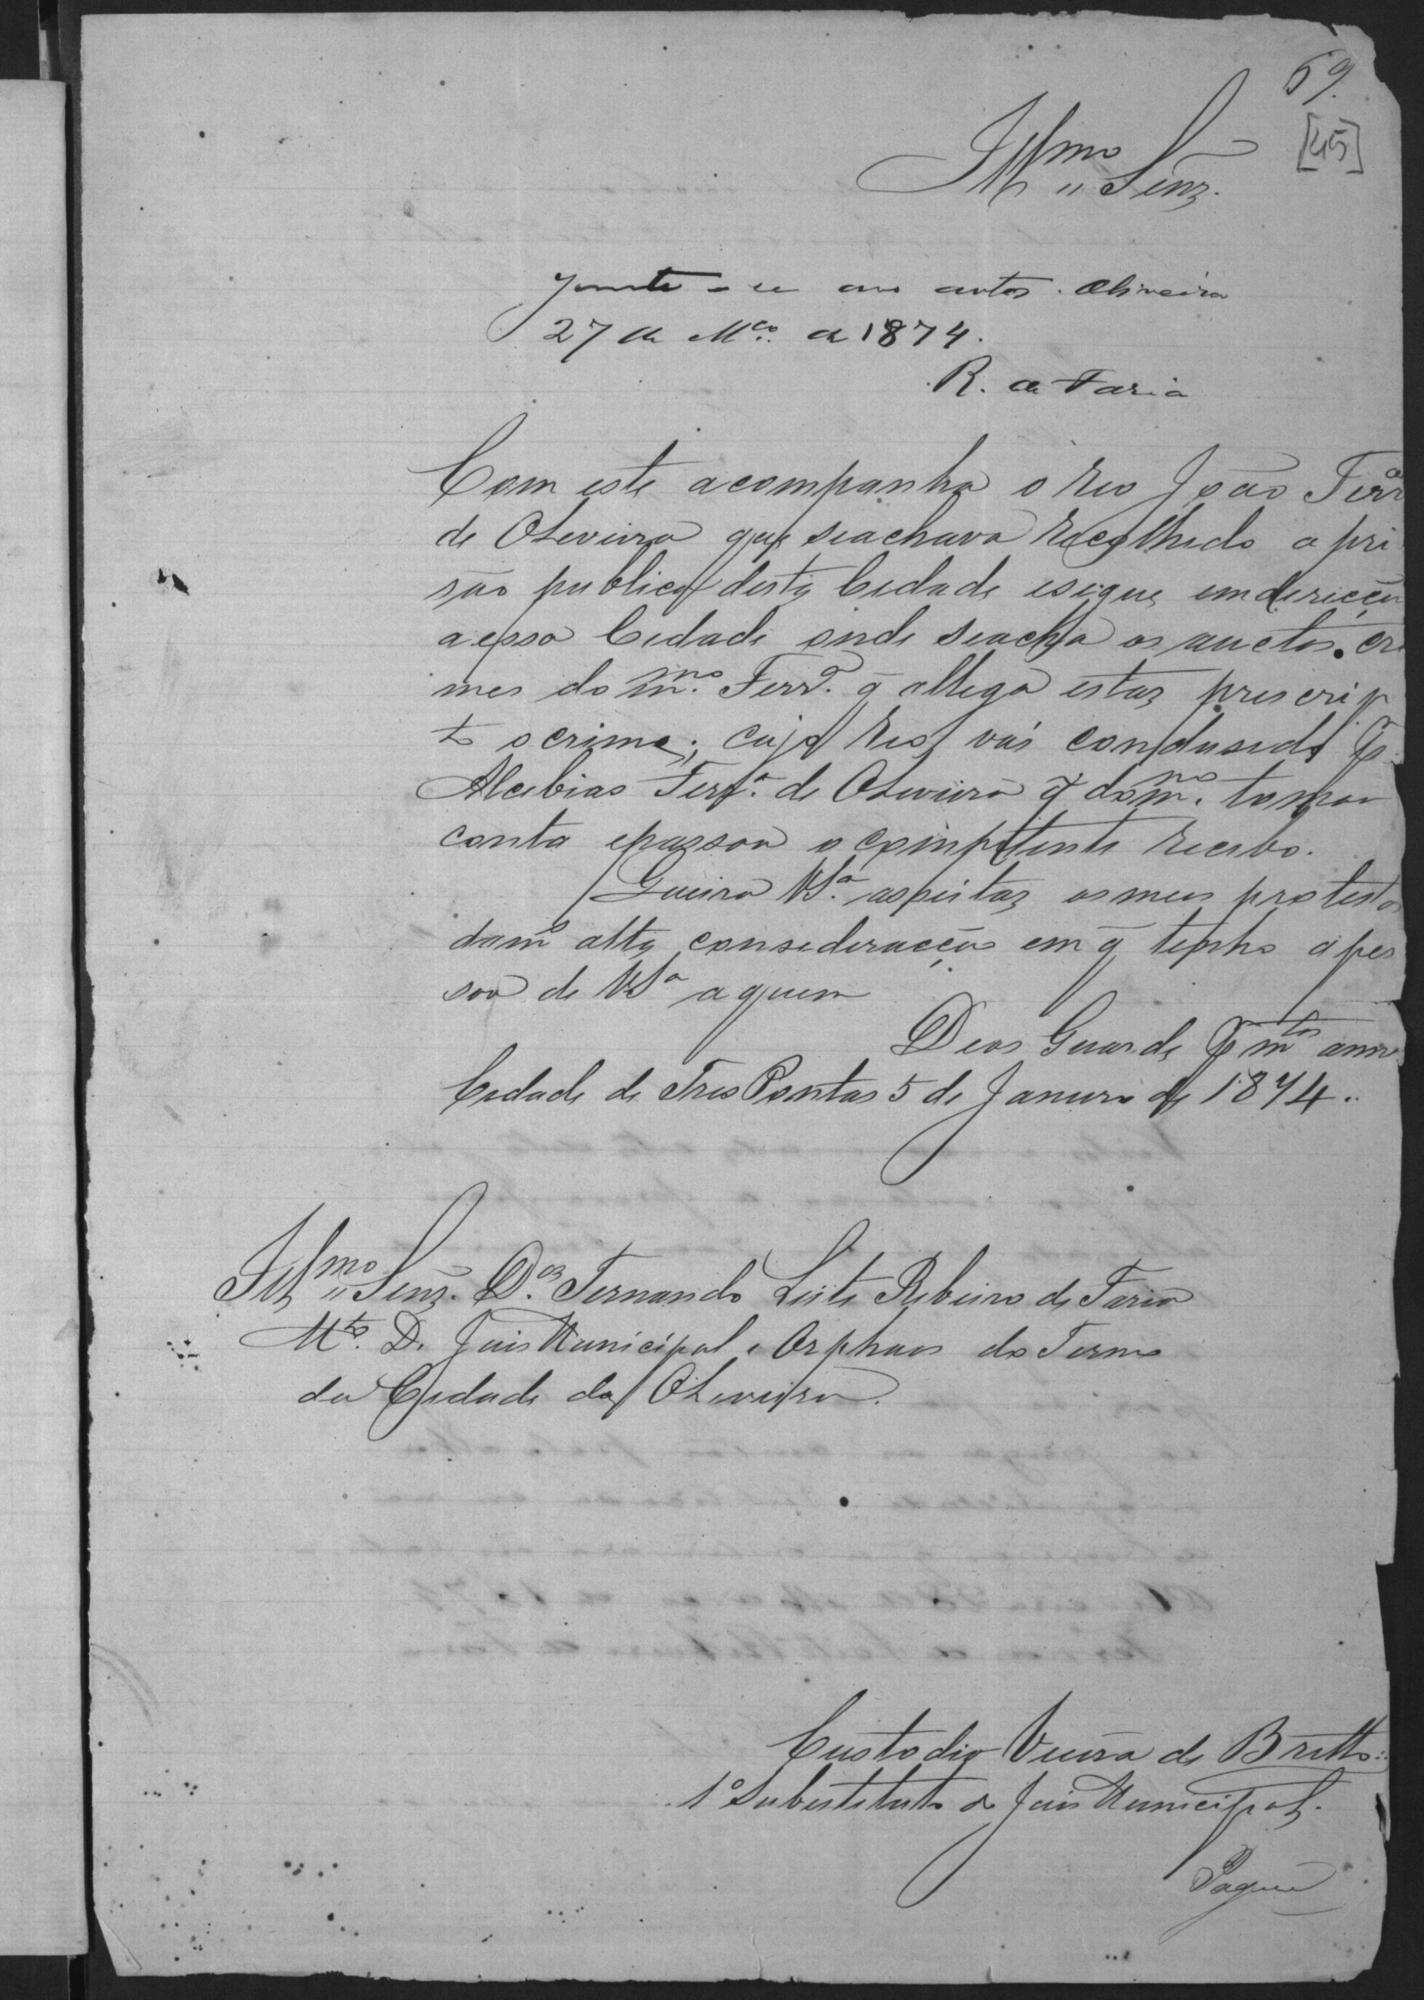 69.
[45]
Illmo Senr.
Junte-se aos autos. Oliveira
27 de Mço. de 1874.
R. de Faria
Com este acompanha o reo João Ferrª
de Oleveira que seachava recolhido a pri
são publica desta Cedade esegue emderecção
aessa Cedade onde seacha os auctos cri
mes do mmo. Ferrª. q̃ allega estar prescrip
to o crime; cujo reo vai condusido P.
Alcebias Ferrª. de Oleveira q̃ domno. tomou
conta epassou o compitente recibo.
Queira VSª. aspeitar osmeus protestos
damª alta consideracção em q̃ tenho apes
soa de VSª aquem
Deos Guarde P mtos annos
Cedade de Tres Pontas 5 de Janeiro de 1874.
Illmo Senr. Dor. Fernando Leite Rebeiro de Faria
Mto. D. Juis Municipal e Orphaos do Termo
da Cedade da Oleveira.
Custodio Vieira de Britto
1º Subestituto do Juis Municipal.